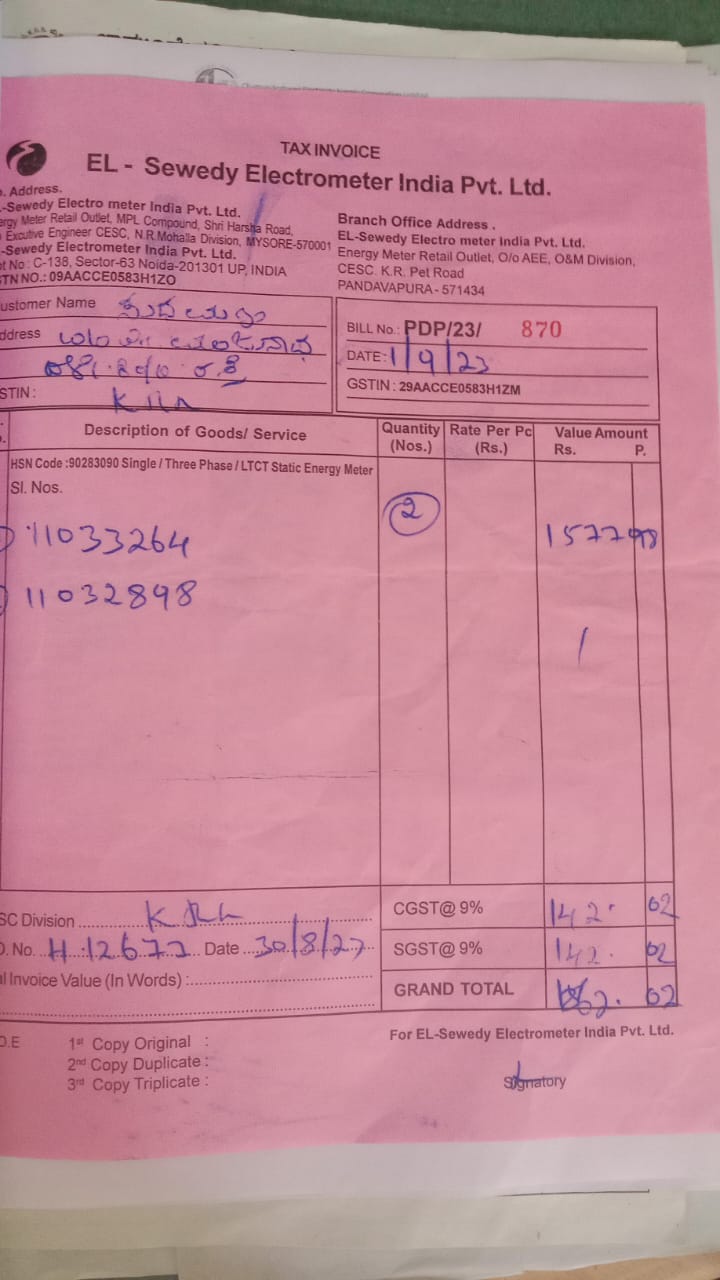 TAX INVOICE
EL - Sewedy Electrometer India Pvt. Ltd.
. Address.
-Sewedy Electro meter India Pvt. Ltd.
ergy Meter Retail Outlet, MPL Compound, Shri Harsha Road,
Excutive Engineer CESC, N.R.Mohalla Division, MYSORE-570001
-Sewedy Electrometer India Pvt. Ltd.
t No : C-138, Sector-63 Noida-201301 UP, INDIA
STN NO.: 09AACCE0583H1ZO
Branch Office Address .
EL-Sewedy Electro meter India Pvt. Ltd.
Energy Meter Retail Outlet, O/o AEE, O&M Division,
CESC. K.R. Pet Road
PANDAVAPURA - 571434
ustomer Name
ddress
STIN :
BILL No.: PDP/23/ 870
DATE: 1/9/23
GSTIN : 29AACCE0583H1ZM
Description of Goods/ Service
Quantity (Nos.)
Rate Per Pc (Rs.)
Value Amount
Rs. P.
HSN Code :90283090 Single / Three Phase / LTCT Static Energy Meter
Sl. Nos.
11033264
2
1577 98
11032898
SC Division
CGST@ 9% 142. 02
O. No. H 12672 Date 30/8/23
SGST@ 9% 142. 02
l Invoice Value (In Words) :
GRAND TOTAL
O.E
1st Copy Original :
2nd Copy Duplicate :
3rd Copy Triplicate :
For EL-Sewedy Electrometer India Pvt. Ltd.
Signatory